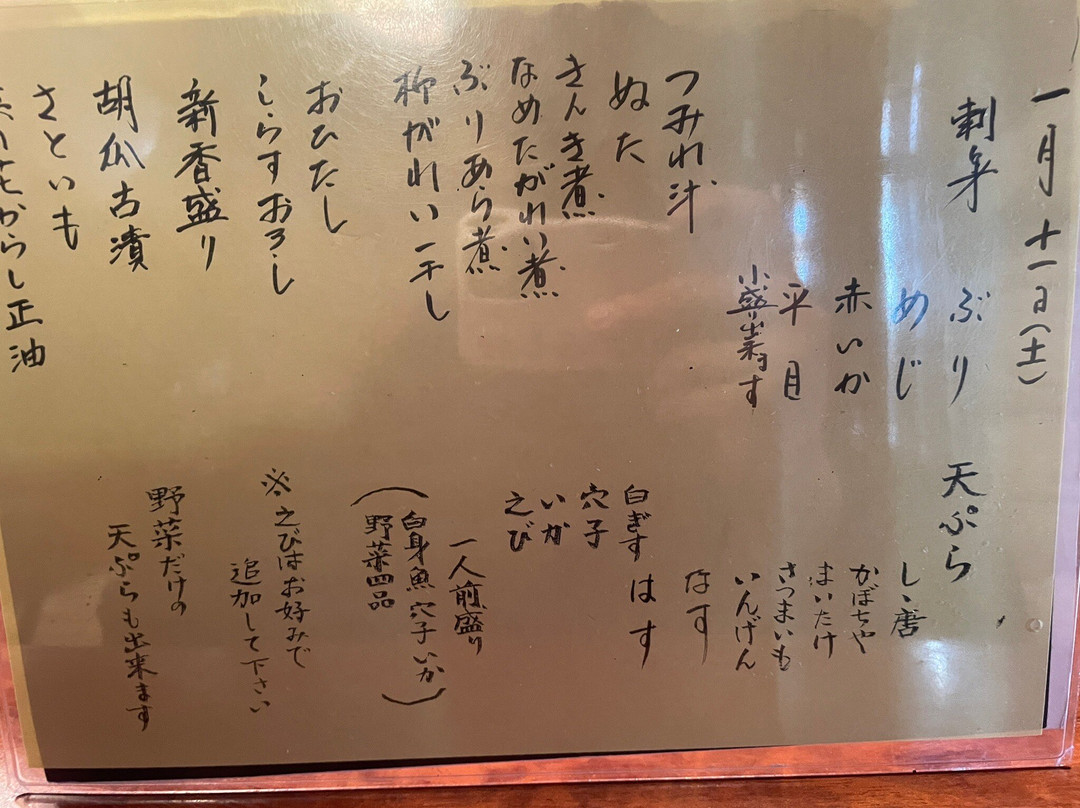 一月十一日(土)
刺身
ぶり
めじ
赤いか
平目
小盛り出来ます
つみれ汁
ぬた
きんき煮
なめたがれい煮
ぶりあら煮
柳がれい一干し
おひたし
しらすおろし
新香盛り
胡瓜古漬
さといも
からし正油
天ぷら
しゝ唐
かぼちゃ
まいたけ
さつまいも
いんげん
なす
はす
白ぎす
穴子
いか
えび
一人前盛り
(白身魚 穴子 いか
野菜四品)
※えびはお好みで
追加して下さい
野菜だけの
天ぷらも出来ます